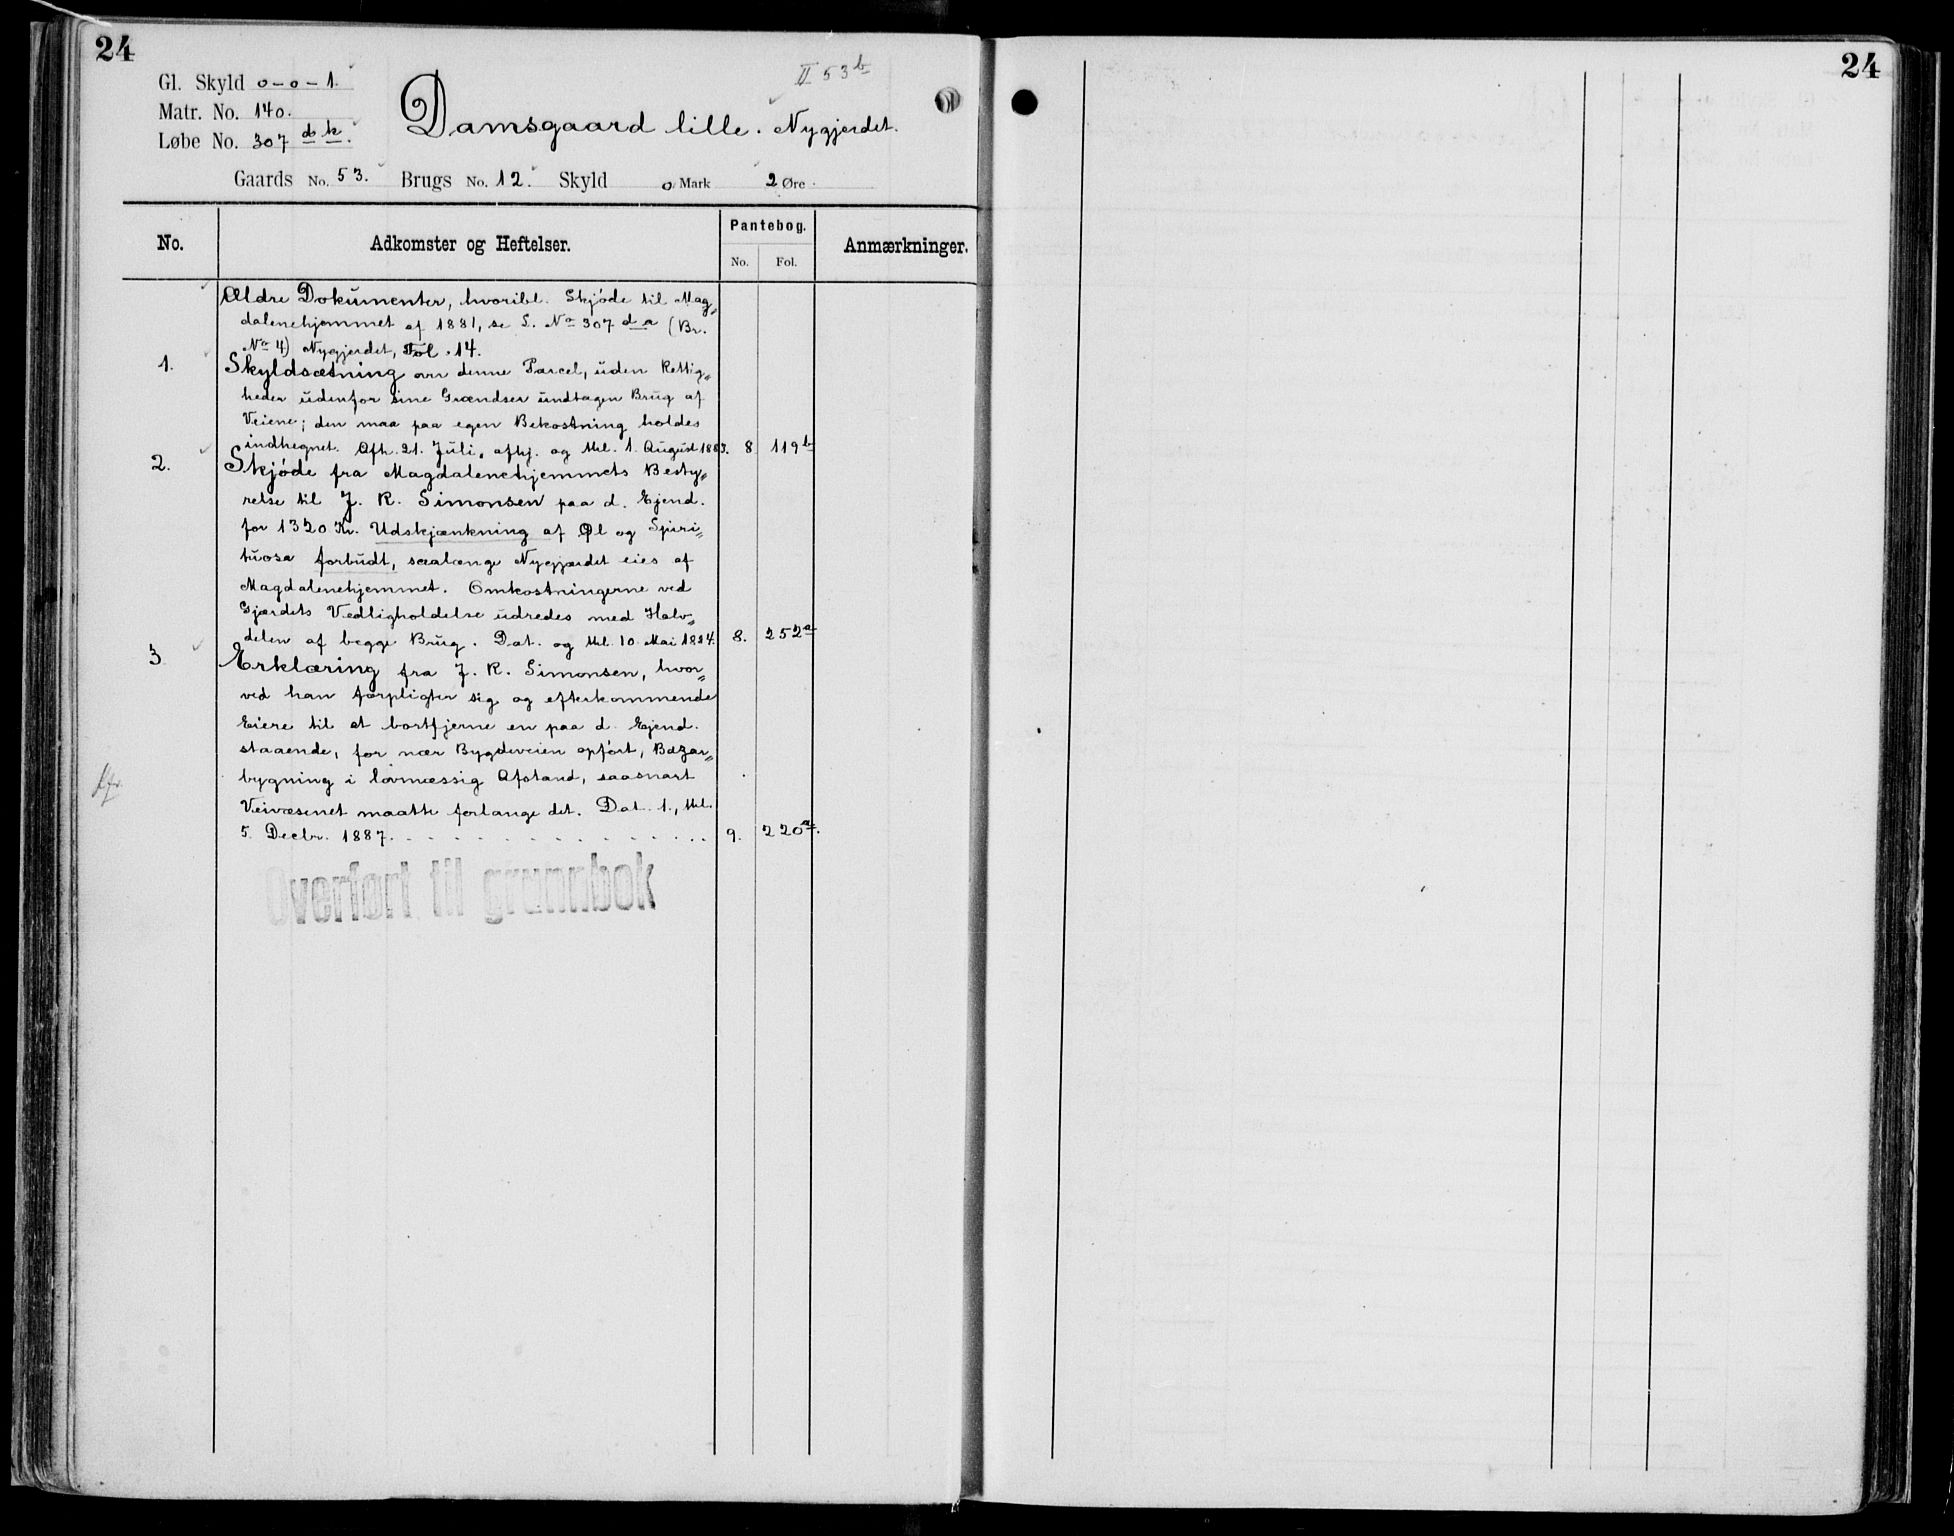 24
24
II 53 b
Gl. Skyld 0-0-1.
Matr. No. 140.
Løbe No. 307 d k.
Damsgaard lille. Nygjerdet.
Gaards No. 53. Brugs No. 12. Skyld 0 Mark 2 Øre
No. Adkomster og Heftelser. Pantebog. Anmærkninger.
No. Fol.
Ældre Dokumenter, hvoribl. Skjøde til Mag„
dalenehjemmet af 1881, se L. No 307 d a (Br.
No 4) Nygjerdet, Fol. 14.
1. Skyldsætning over denne Parcel, uden Rettig„
heder udenfor sine Grændser undtagen Brug af
Veiene; den maa paa egen Bekostning holdes
indhegnet. Afh. 21. Juli, afhj. og thl. 1. August 1883. 8 119 b
2. Skjøde fra Magdalenehjemmets Besty„
relse til J. R. Simonsen paa d. Ejend.
for 1320 Kr. Udskjænkning af Øl og Spiri„
tuosa forbudt, saalænge Nygjærdet eies af
Magdalenehjemmet. Omkostningerne ved
Gjærdets Vedligholdelse udredes med Halv„
delen af begge Brug. Dat. og thl. 10. Mai 1884. 8. 252 a
3. Erklæring fra J. R. Simonsen, hvor„
ved han forpligter sig og efterkommende
Eiere til at bortfjerne en paa d. Ejend.
staaende, for nær Bygdeveien opført, Bazar„
bygning i lovmæssig Afstand, saasnart
Veivæsenet maatte forlange det. Dat. 1., thl.
5. Decbr. 1887. 9. 220 a.
Overført til grunnbok